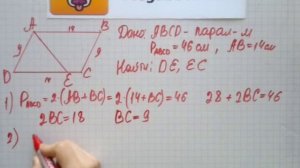 A 14 B
9 9
D E C
Дано ABCD - парал-м
P_ABCD = 46 см, AB = 14 см
Найти: DE, EC
1) P_ABCD = 2·(AB+BC) = 2·(14+BC) = 46 28 + 2BC = 46
2BC = 18 BC = 9
2)